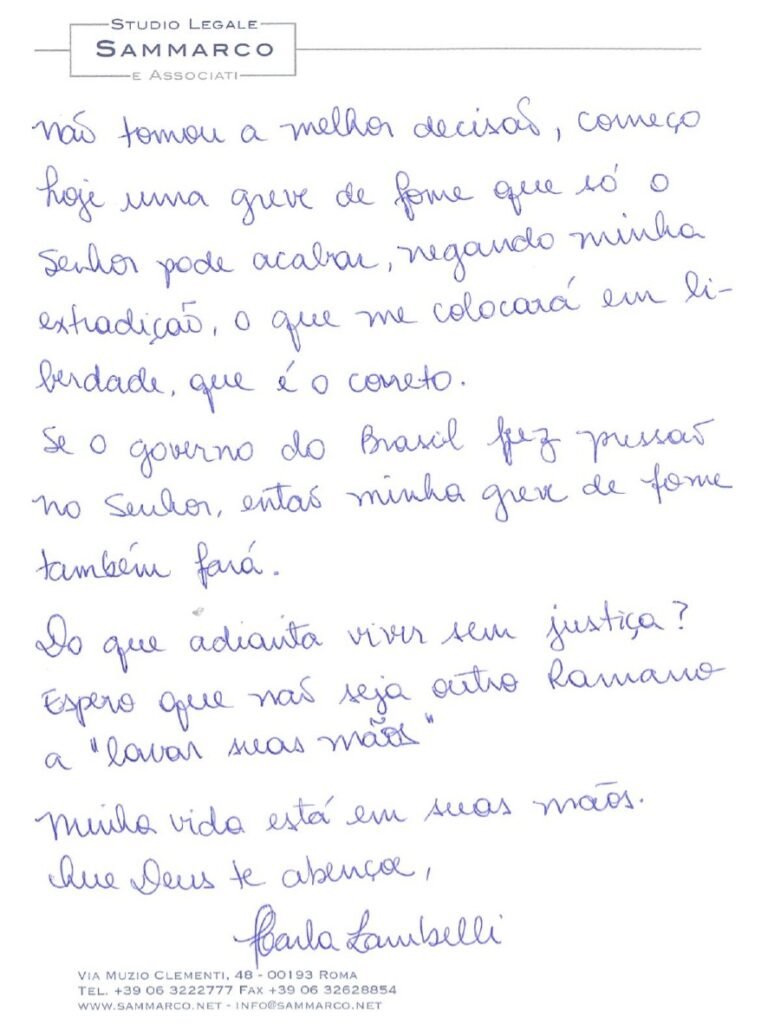 STUDIO LEGALE
SAMMARCO
E ASSOCIATI
não tomou a melhor decisão, começo
hoje uma greve de fome que só o
Senhor pode acabar, negando minha
extradição, o que me colocará em li-
berdade, que é o correto.
Se o governo do Brasil fez pressão
no Senhor, então minha greve de fome
também fará.
Do que adianta viver sem justiça?
Espero que não seja outro Romano
a "lavar suas mãos"
Minha vida está em suas mãos.
Que Deus te abençoe,
Carla Zambelli
VIA MUZIO CLEMENTI, 48 - 00193 ROMA
TEL. +39 06 3222777 FAX +39 06 32628854
WWW.SAMMARCO.NET - INFO@SAMMARCO.NET